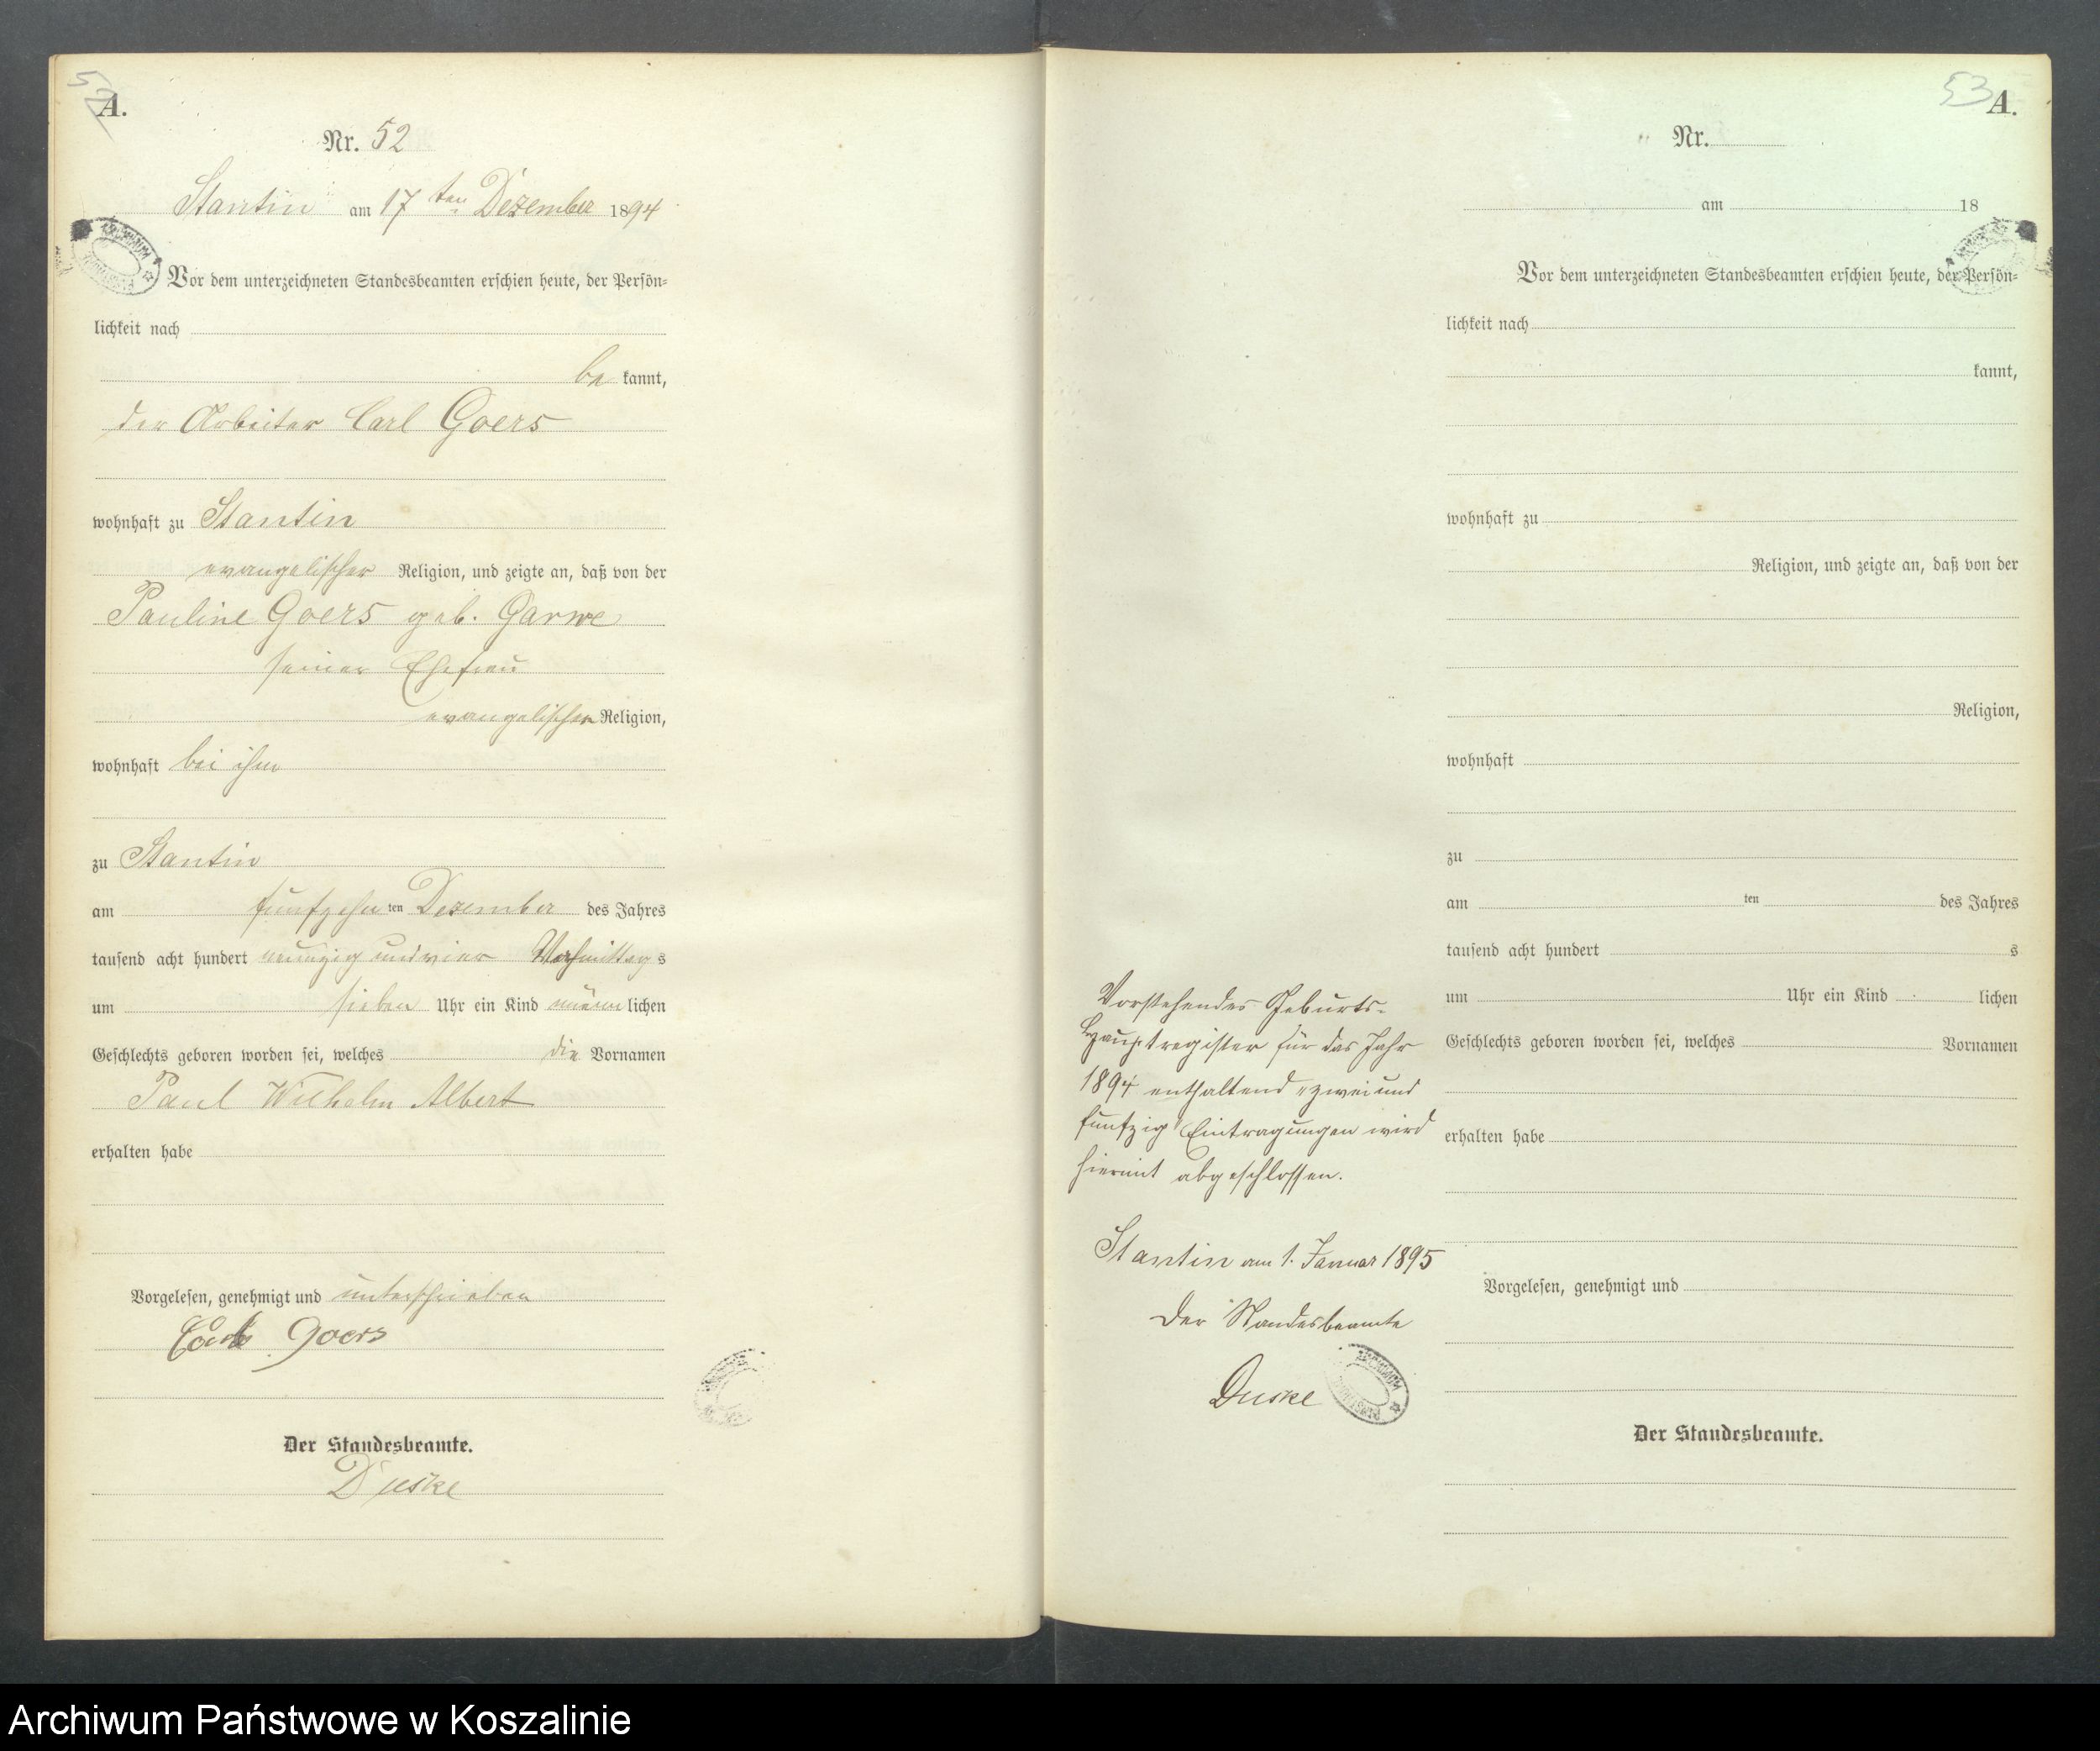 52
A.
Nr. 52
Stantin am 17ten Dezember 1894
Vor dem unterzeichneten Standesbeamten erschien heute, der Persön-
lichkeit nach
be kannt,
der Arbeiter Carl Goers
wohnhaft zu Stantin
evangelischer Religion, und zeigte an, daß von der
Pauline Goers geb. Garwe
seiner Ehefrau
evangelischer Religion,
wohnhaft bei ihm
zu Stantin
am fünfzehn ten Dezember des Jahres
tausend acht hundert neunzig und vier Vormittag s
um sieben Uhr ein Kind männ lichen
Geschlechts geboren worden sei, welches die Vornamen
Paul Wilhelm Albert
erhalten habe
Vorgelesen, genehmigt und unterschrieben
Carl Goers
Der Standesbeamte.
Duske
53
A.
Nr.
am 18
Vor dem unterzeichneten Standesbeamten erschien heute, der Persön-
lichkeit nach
kannt,
wohnhaft zu
Religion, und zeigte an, daß von der
Religion,
wohnhaft
zu
am ten des Jahres
tausend acht hundert s
um Uhr ein Kind lichen
Geschlechts geboren worden sei, welches Vornamen
erhalten habe
Vorgelesen, genehmigt und
Der Standesbeamte.
Vorstehendes Geburts-
Hauptregister für das Jahr
1894 enthaltend "zwei und
fünfzig" Eintragungen wird
hiermit abgeschlossen.
Stantin am 1. Januar 1895
Der Standesbeamte
Duske
ARCHIWUM
Archiwum Państwowe w Koszalinie